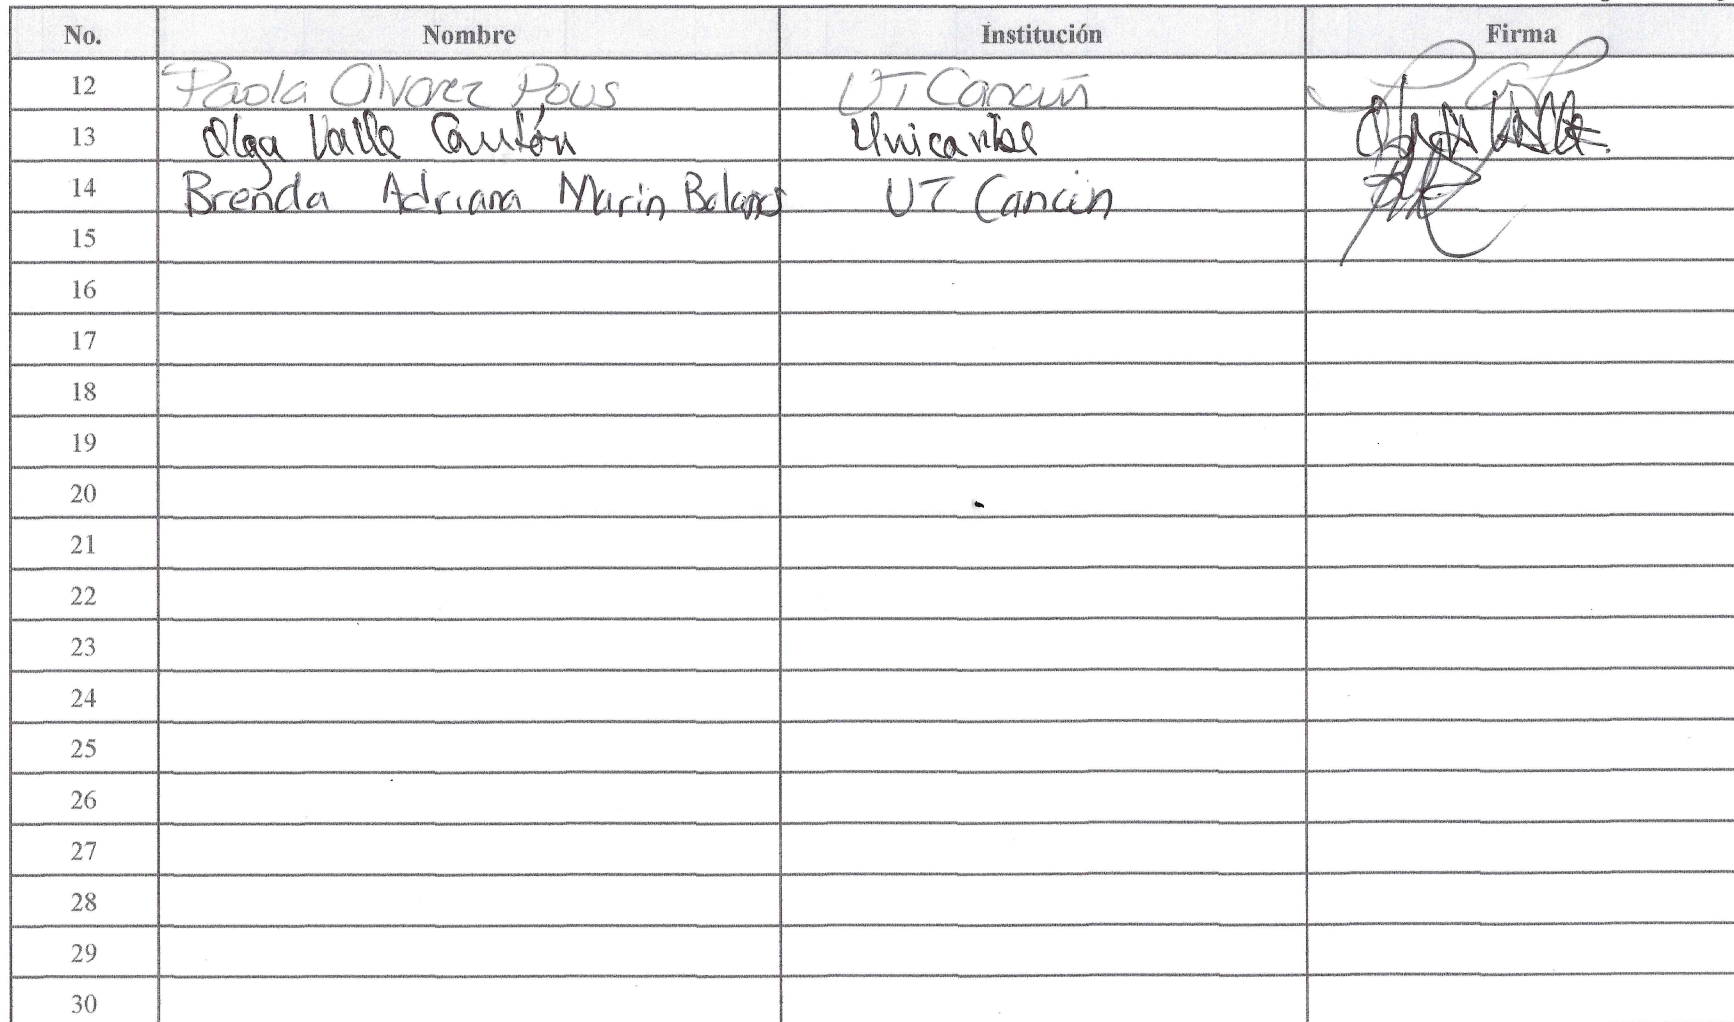 No. Nombre Institución Firma
12 Paola Alvarez Pous UT Cancún
13 Olga Valle Unicaribe
14 Brenda Adriana Marin Bolaños UT Cancún
15
16
17
18
19
20
21
22
23
24
25
26
27
28
29
30